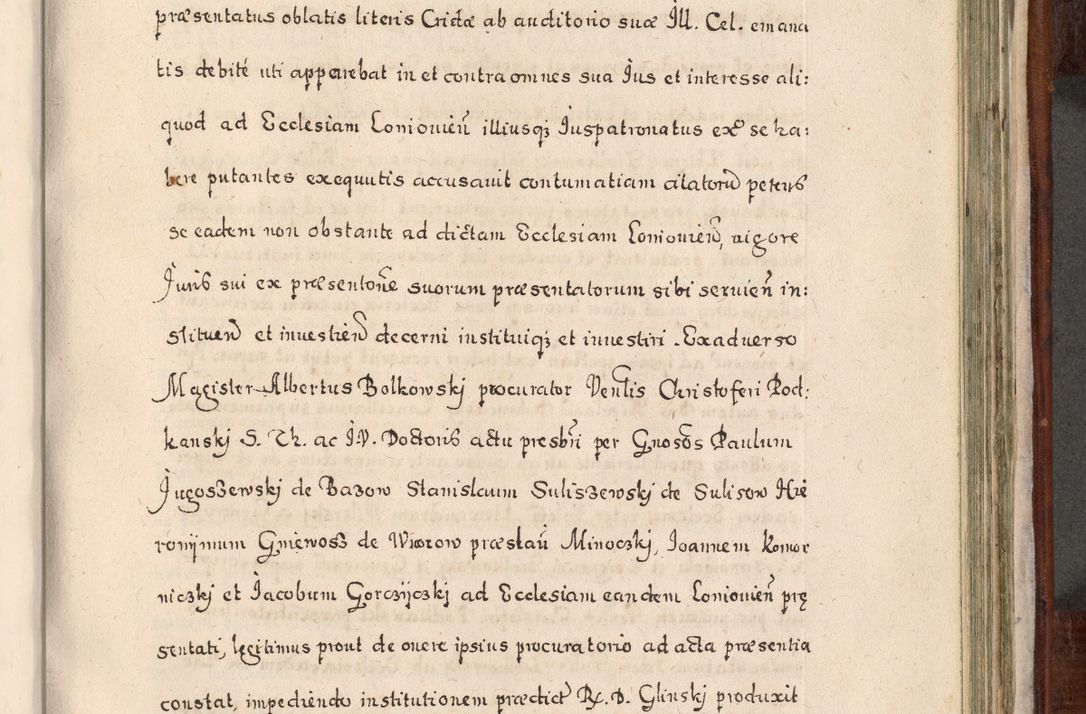 præsentatus oblatis literis Cridæ ab auditorio suæ Ill. Cel. emana
tis debité uti apparebat in et contra omnes sua Jus et interesse ali:
quod ad Ecclesiam Loniouien̄ illiusqꝫ Juspatronatus ex se ha:
bere putantes exequutis accusauit contumatiam citatorū petens
se eadem non obstante ad dictam Ecclesiam Loniouien̄, uigore
Juris sui ex præsentōne suorum præsentatorum sibi seruien̄ in:
stituen̄ et inuestien̄ decerni instituiqꝫ et inuestiri. Exaduerso
Magister Albertus Bolkowskj procurator Ven̄lis Christoferi Pod:
kanskj S. Th. ac J.V. Doctoris actu presbr̄i per Gnosōs Paulum
Jugoszewskj de Bazow Stanislaum Suliszewskj de Sulisow Hie
ronijmum Gniewosz de Wiorow præstan̄ Minoczkj, Joannem Komor
niczkj et Jacobum Gorczijczkj ad Ecclesiam eandem Loniouien̄ prę
sentati, legitimus prout de onere ipsius procuratorio ad acta præsentia
constat, impediendo institutionem prædict R. D. Glinskj produxit